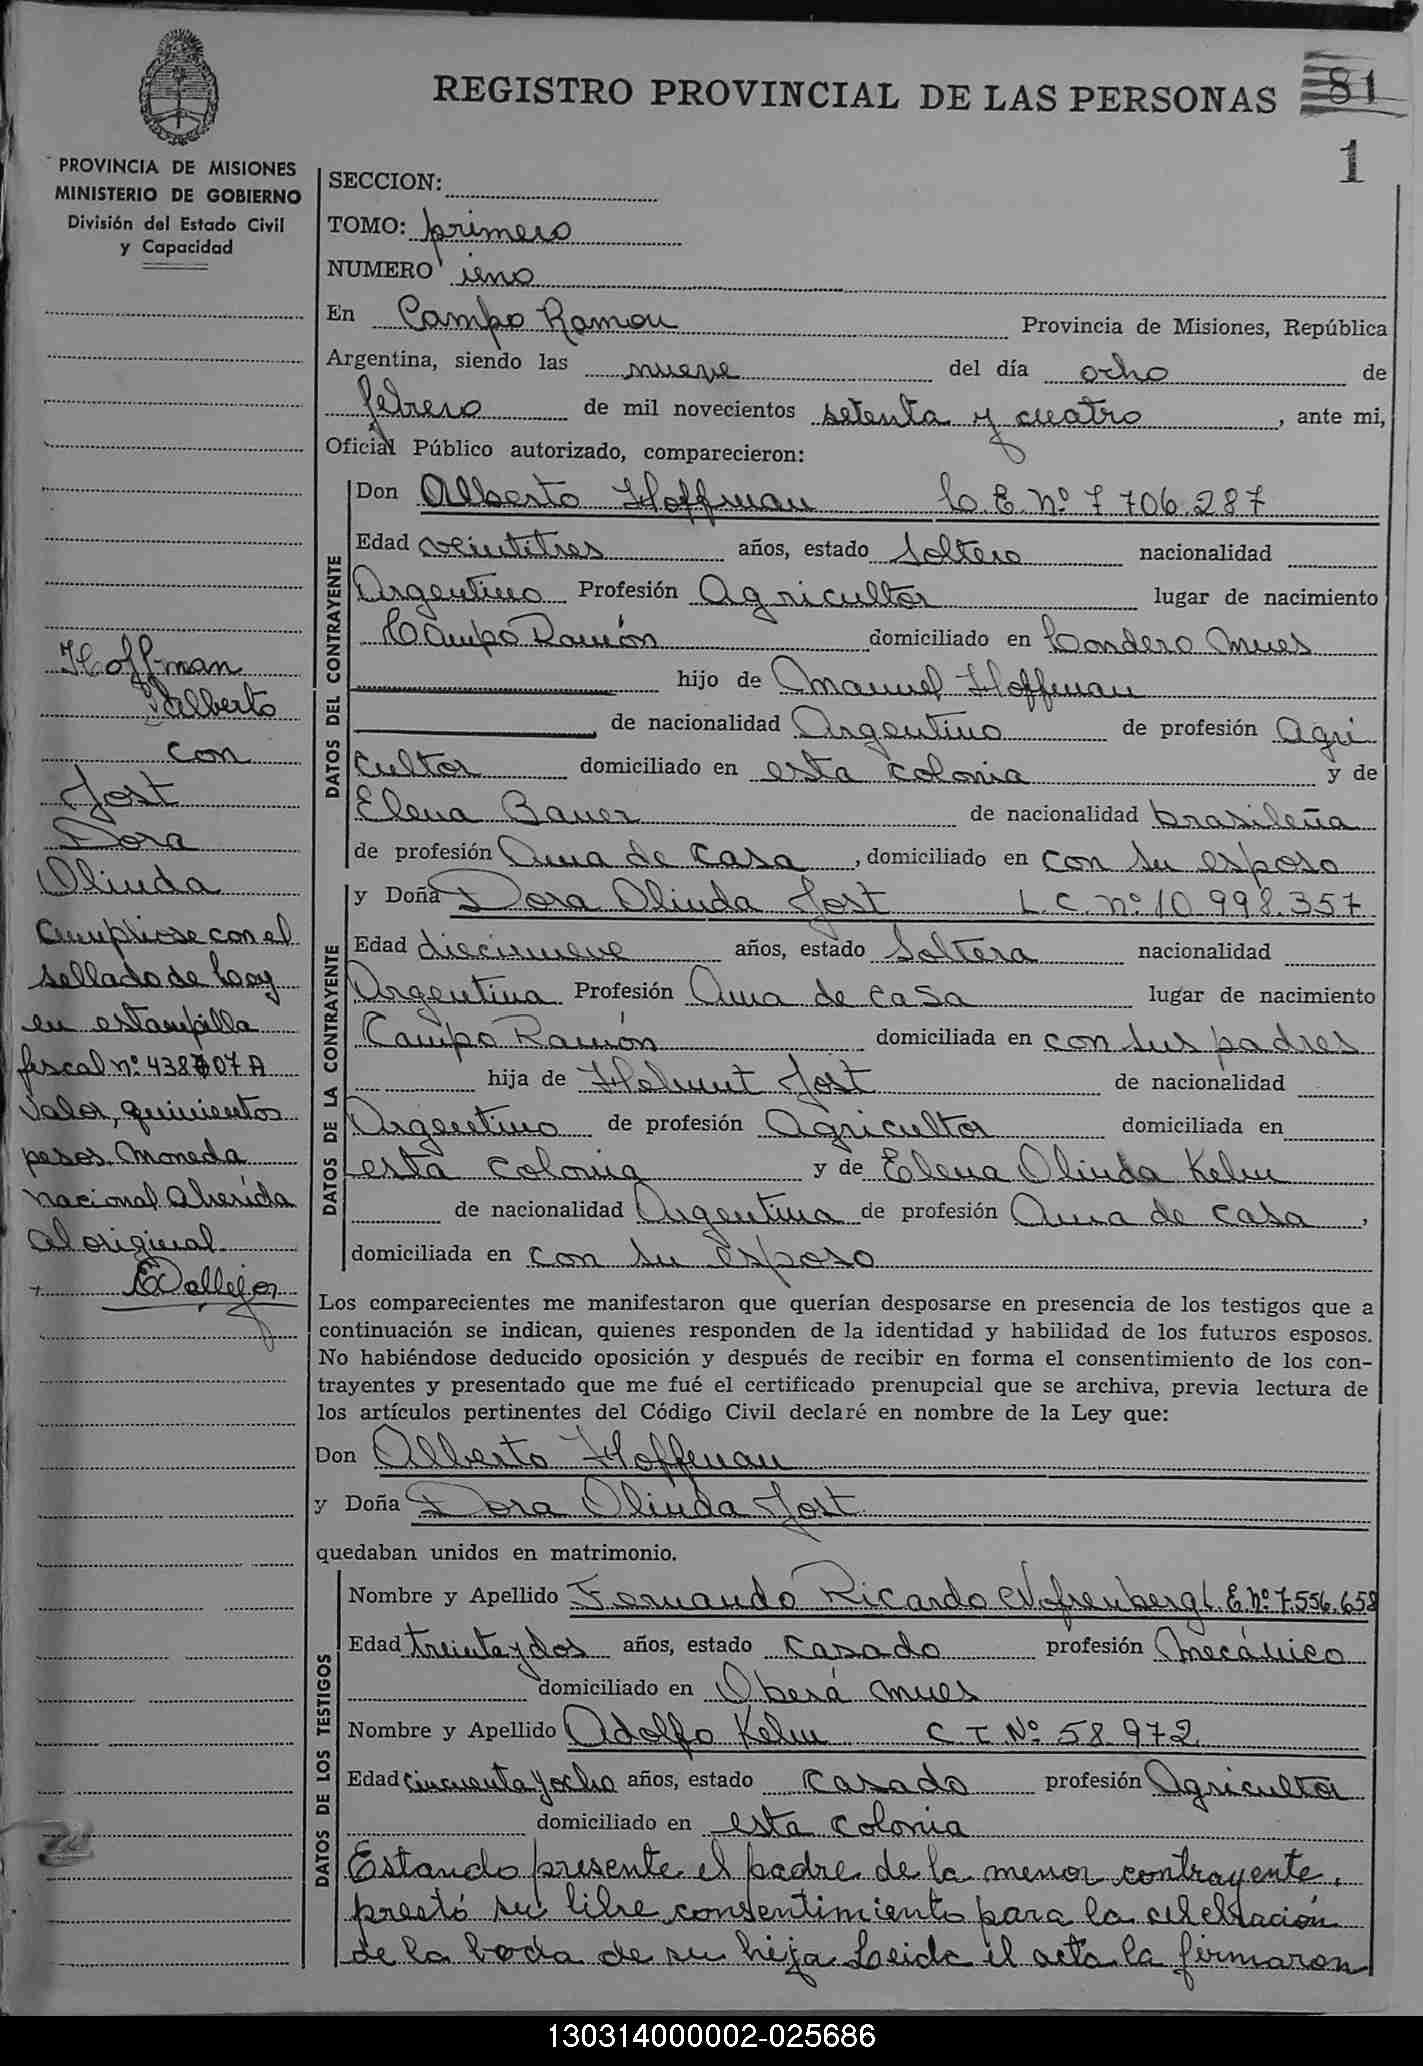 REGISTRO PROVINCIAL DE LAS PERSONAS
81
1
PROVINCIA DE MISIONES
MINISTERIO DE GOBIERNO
División del Estado Civil
y Capacidad
Hoffman
Alberto
con
Jost
Dora
Olinda
Cumpliose con el
sellado de Ley
en estampilla
fiscal nº 438707 A
Valor, quinientos
pesos Moneda
nacional adherida
al original
EVallejos
SECCION:
TOMO: primero
NUMERO uno
En Campo Ramon Provincia de Misiones, República
Argentina, siendo las nueve del día ocho de
febrero de mil novecientos setenta y cuatro, ante mi,
Oficial Público autorizado, comparecieron:
DATOS DEL CONTRAYENTE
Don Alberto Hoffman L.E. nº 7 706.287
Edad veintitres años, estado Soltero nacionalidad
Argentino Profesión Agricultor lugar de nacimiento
Campo Ramón domiciliado en Condero Mnes
hijo de Manuel Hoffman
de nacionalidad Argentino de profesión Agri
cultor domiciliado en esta colonia y de
Elena Bauer de nacionalidad brasileña
de profesión Ama de casa, domiciliado en con su esposo
DATOS DE LA CONTRAYENTE
y Doña Dora Olinda Jost L.C. nº 10.998.357
Edad diecinueve años, estado Soltera nacionalidad
Argentina Profesión Ama de casa lugar de nacimiento
Campo Ramón domiciliada en con sus padres
hija de Helmut Jost de nacionalidad
Argentino de profesión Agricultor domiciliada en
esta colonia y de Elena Olinda Kelm
de nacionalidad Argentina de profesión Ama de casa,
domiciliada en con su esposo
Los comparecientes me manifestaron que querían desposarse en presencia de los testigos que a
continuación se indican, quienes responden de la identidad y habilidad de los futuros esposos.
No habiéndose deducido oposición y después de recibir en forma el consentimiento de los con-
trayentes y presentado que me fué el certificado prenupcial que se archiva, previa lectura de
los artículos pertinentes del Código Civil declaré en nombre de la Ley que:
Don Alberto Hoffman
y Doña Dora Olinda Jost
quedaban unidos en matrimonio.
DATOS DE LOS TESTIGOS
Nombre y Apellido Fernando Ricardo L.E. nº 7.556.658
Edad treinta y dos años, estado casado profesión Mecánico
domiciliado en Oberá Mnes
Nombre y Apellido Adolfo Kelm C. I. Nº 58.972
Edad cincuenta y ocho años, estado casado profesión Agricultor
domiciliado en esta colonia
Estando presente el padre de la menor contrayente,
prestó su libre consentimiento para la celebración
de la boda de su hija. Leida el acta la firmaron
130314000002-025686